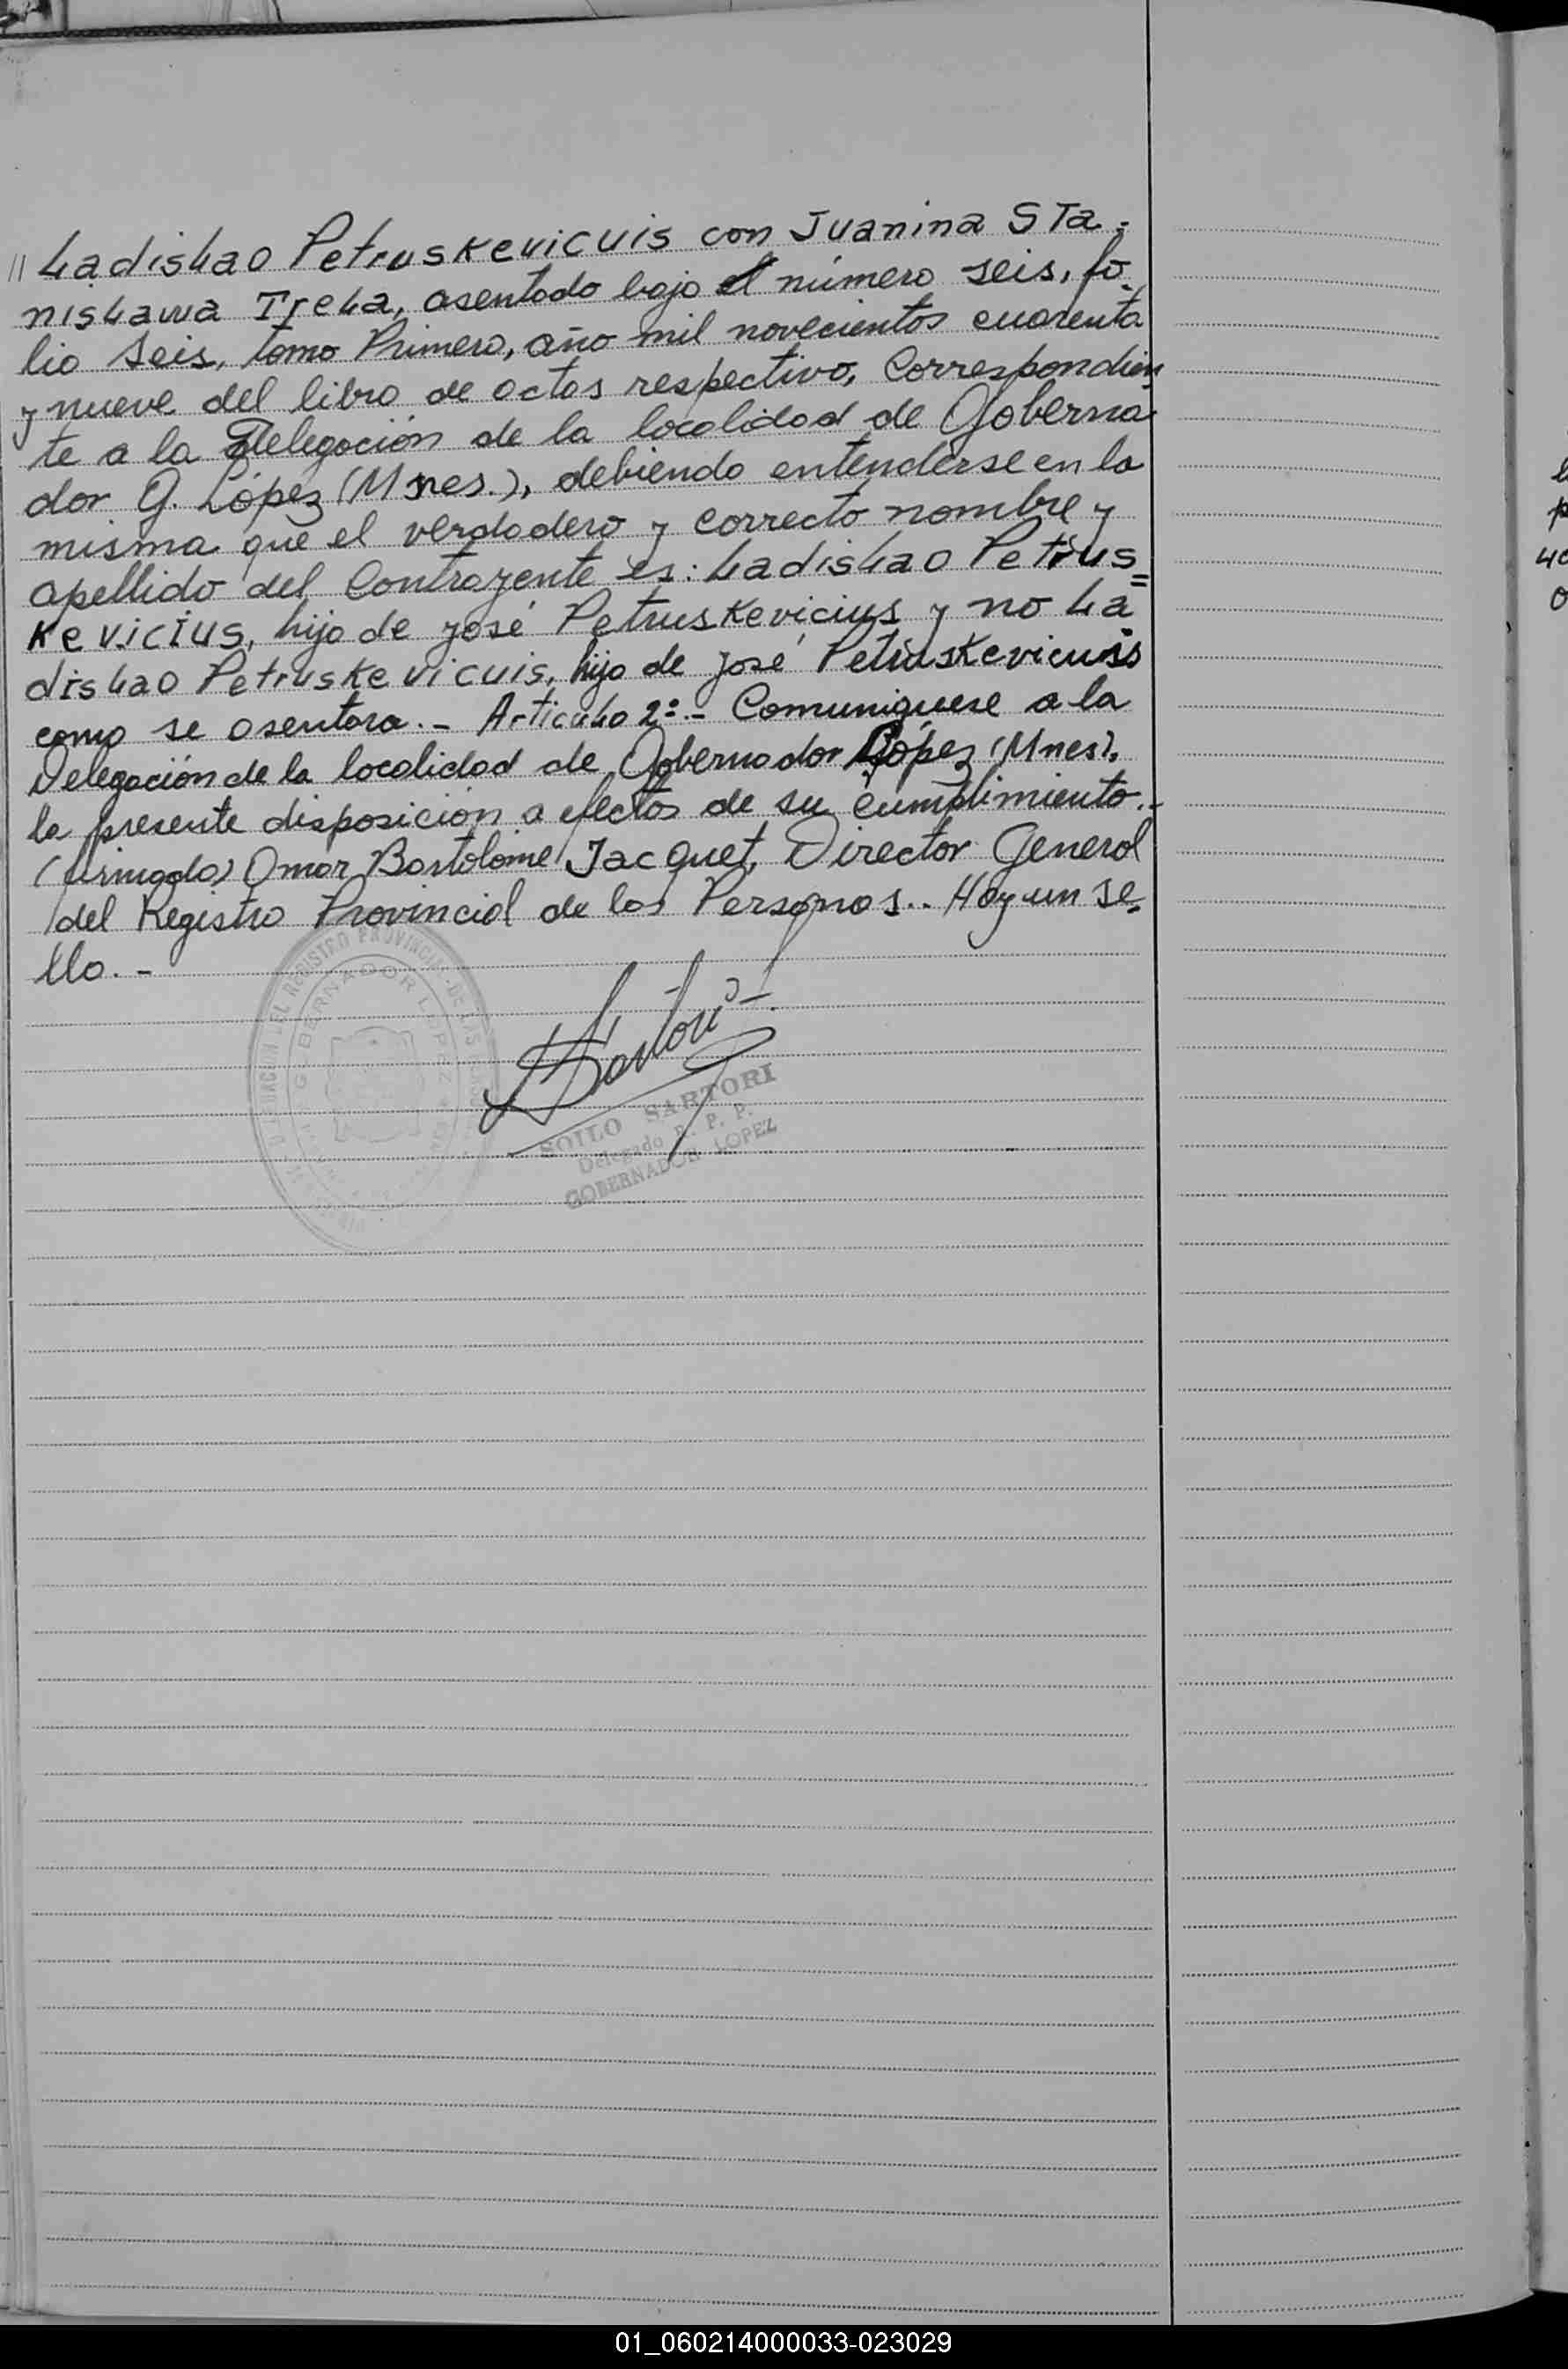 // Ladislao Petruskevicuis con Juanina Sta-
nislawa Trela, asentado bajo el número seis, fo-
lio seis, tomo Primero, año mil novecientos cuarenta
y nueve del libro de actas respectivo, Correspondien
te a la Delegación de la localidad de Goberna-
dor G. López (Mnes.), debiendo entenderse en la
misma que el verdadero y correcto nombre y
apellido del Contrayente es: Ladislao Petrus=
kevicius, hijo de José Petruskevicius y no La-
dislao Petruskevicuis, hijo de José Petruskevicuis
como se asentara.- Articulo 2º.- Comuníquese a la
Delegación de la localidad de Gobernador López (Mnes),
la presente disposición a efectos de su cumplimiento.-
(firmado) Omar Bartolomé Jacquet, Director General
del Registro Provincial de las Personas.. Hay un se-
llo.-
DEL REGISTRO PROVINCIAL DE LAS
GOBERNADOR LOPEZ
Sartori
SOILO SARTORI
Delegado R. P. P.
GOBERNADOR LOPEZ
01_060214000033-023029